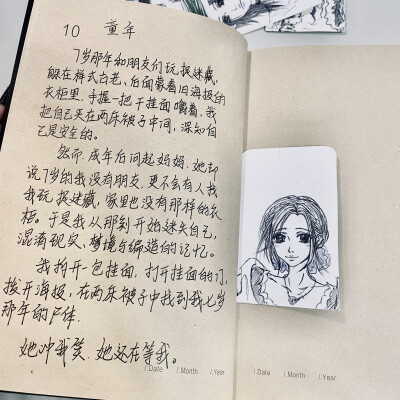 10 童年
7岁那年和朋友们玩捉迷藏,
躲在样式古老、后面蒙着旧海报的
衣柜里.手握一把干挂面嚼着,我
把自己夹在两床被子中间,深知自
己是安全的。
然而,成年后问起妈妈,她却
说7岁的我没有朋友,更不会有人找
我玩捉迷藏,家里也没有那样的衣
柜,于是我从那刻开始迷失自己,
混淆现实、梦境与编造的记忆。
我拆开一包挂面,打开挂面的门,
拨开海报,在两床被子中找到我七岁
那年的尸体.
她冲我笑.她还在等我。
/.Date /.Month /.Year
/.Date /.Month /.Year